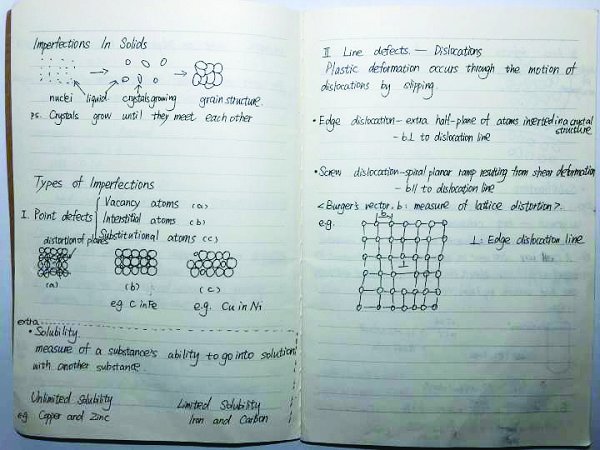 Imperfections In Solids
nuclei liquid crystals growing grain structure.
ps. Crystals grow until they meet each other
Types of Imperfections
Vacancy atoms (a)
I. Point defects Interstitial atoms (b)
Substitutional atoms (c)
distortion of planes
(a) (b) (c)
eg C in Fe e.g. Cu in Ni
extra
• Solubility
measure of a substance's ability to go into solution
with another substance.
Unlimited Solubility Limited Solubility
eg Copper and Zinc Iron and Carbon
II Line defects. — Dislocations
Plastic deformation occurs through the motion of
dislocations by slipping.
• Edge dislocation – extra half-plane of atoms inserted in a crystal
structure
- b⊥ to dislocation line
• Screw dislocation – spiral planar ramp resulting from shear deformation
- b// to dislocation line
<Burger's vector, b: measure of lattice distortion>.
e.g. b
⊥: Edge dislocation line
⊥